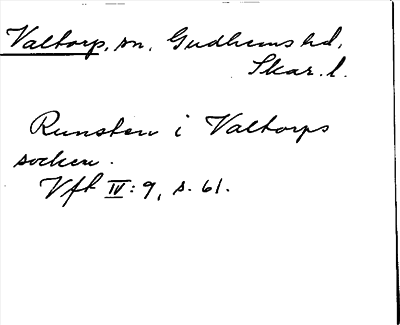 Valtorp, sn, Gudhems hd,
Skar. l.
Runsten i Valtorps
socken.
Vft IV: 9, s. 61.